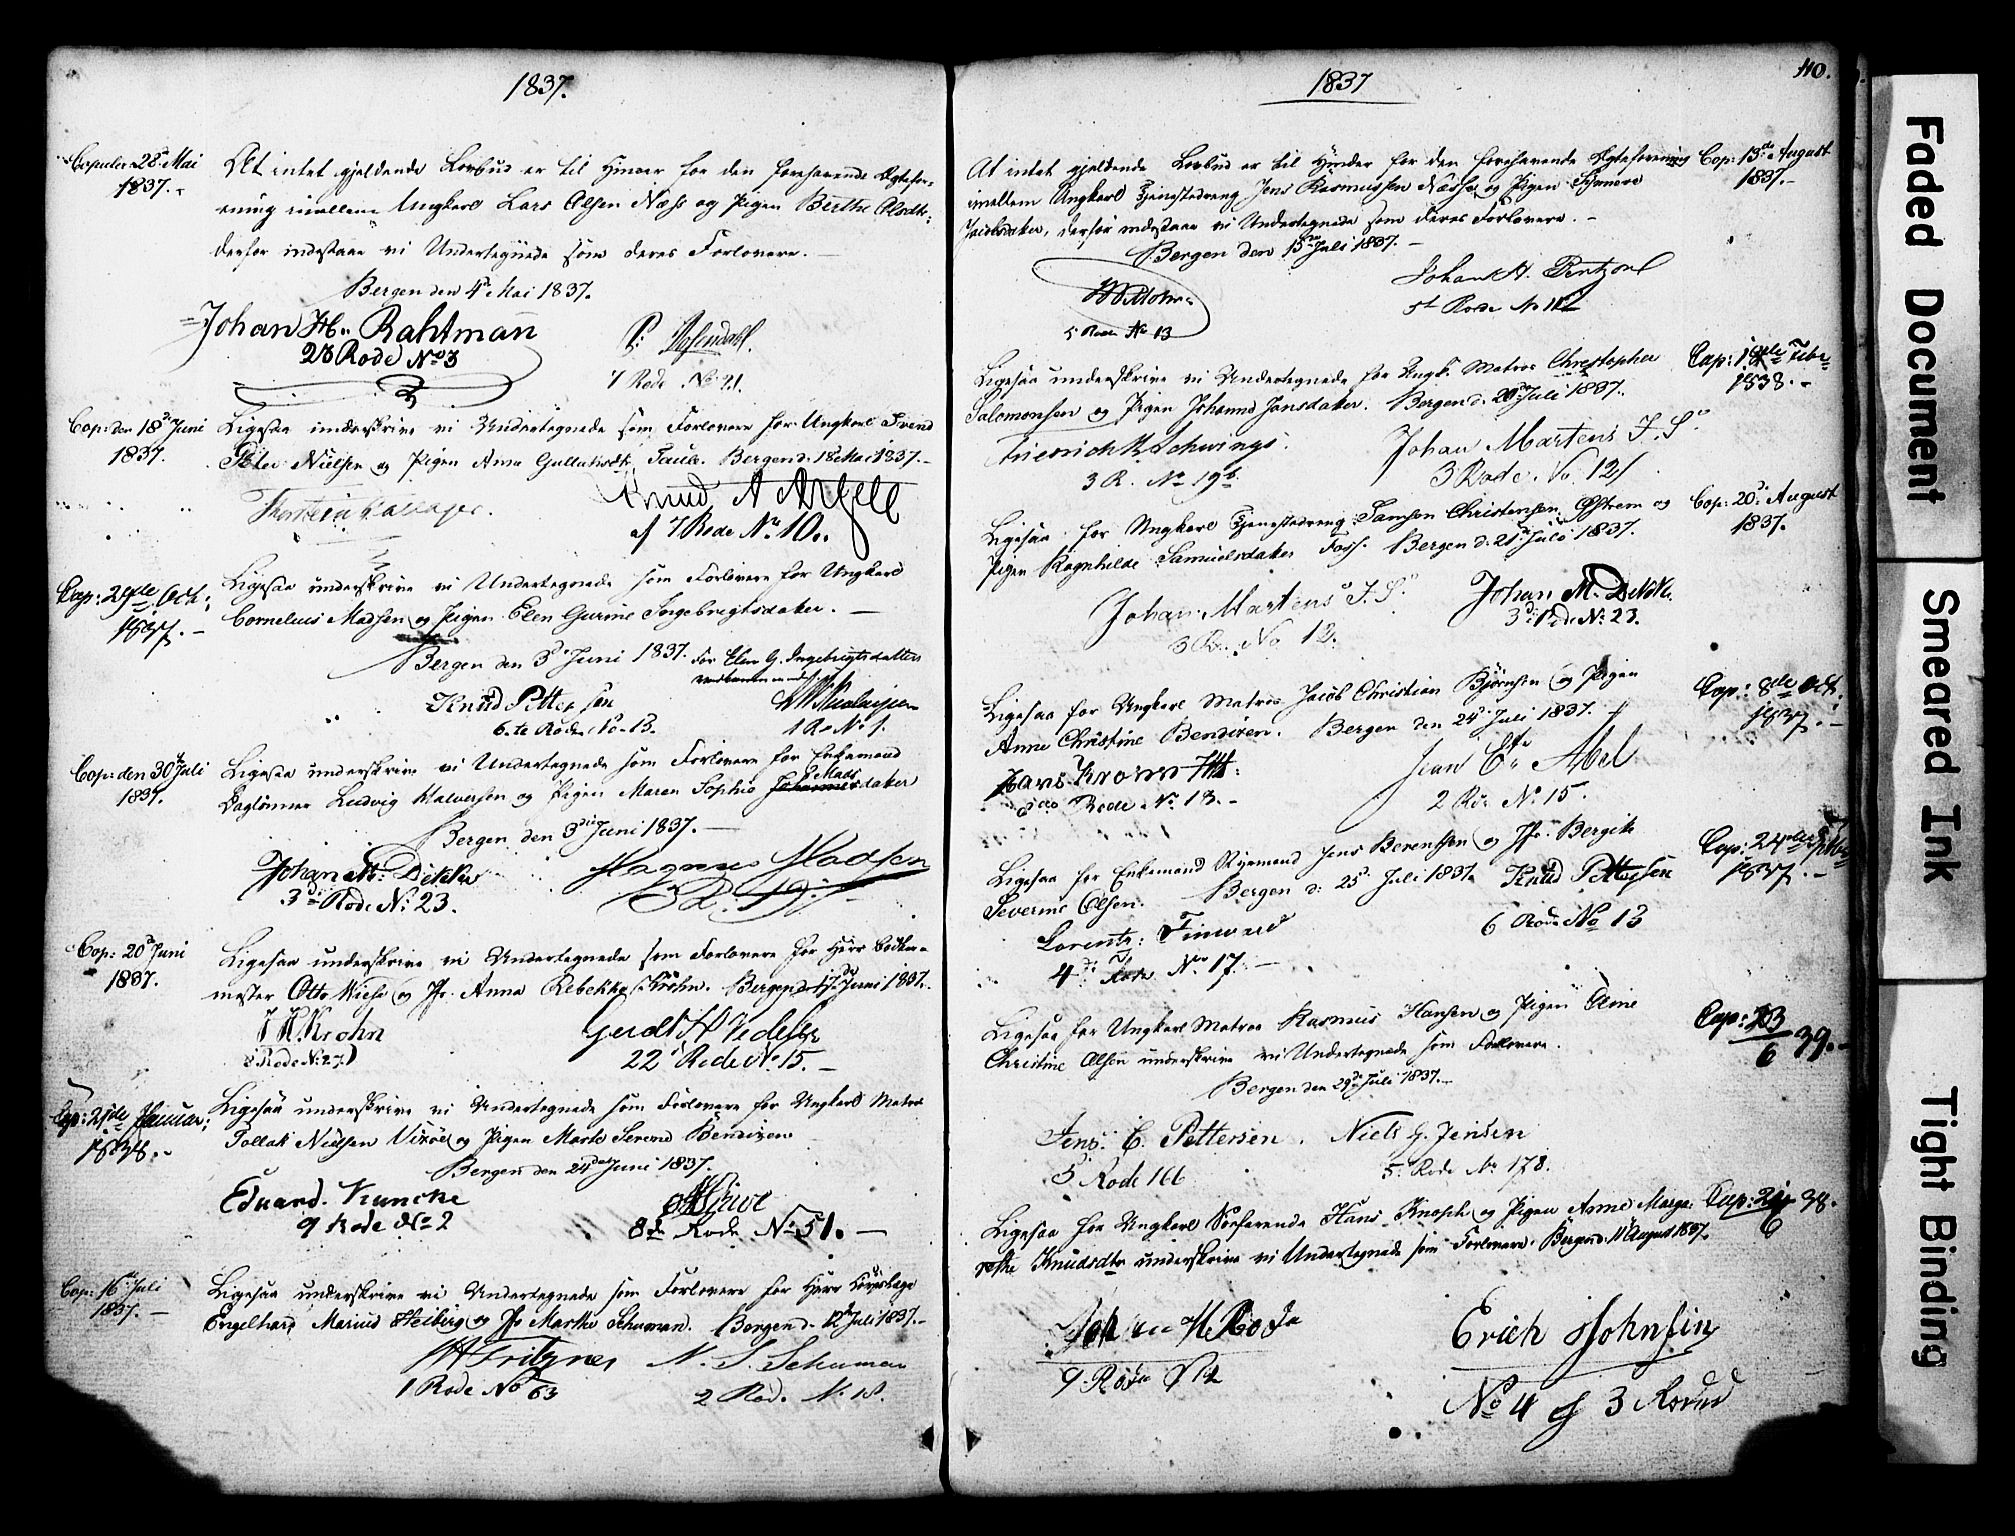 1837.
Copuler. 28de Mai
1837.
At intet gjeldende Lovbud er til Hinder for den forehavende Ægtefor-
ening imellem Ungkarl Lars Olsen Næss og Pigen Berthe Olsdtr;
derfor indestaae vi Undertegnede som deres Forlovere.
Bergen den 4de Mai 1837.
Johan H. Rahtmann
23 Rode No 3
P. Rosendahl.
7 Rode No 21.
Cop: den 18de Juni
1837.
Ligesaa underskrive vi Undertegnede som Forlovere for Ungkarl Svend
Peder Nielsen og Pigen Anna Gullaksdtr Bergen d. 18 Mai 1837.
Knud A
af 7 Rode No 10.
Cop: 29de Oct:
1837.
Ligesaa underskrive vi Undertegnede som Forlovere for Ungkarl
Cornelius Madsen og Pigen Elen Gurine Ingebregtsdatter.
Bergen den 3de Juni 1837. For Elen G. Ingebrigtsdatter
Knud Pettersen
6-te Rode No 13.
1 Ro No 1.
Cop: den 30te Juli
1837.
Ligesaa underskrive vi Undertegnede som Forlovere for Enkemand
Mads
Daglönner Ludvig Halversen og Pigen Maren Sophie Johannesdatter
Bergen den 3die Juni 1837.
Johan M: Dekke
3die Rode No 23.
Magnus Madsen
3 R. 19.
Cop: 20de Juni
1837.
Ligesaa underskrive vi Undertegnede som Forlovere for Herr Bödker-
mester Otto Wiese og Jfr. Anna Rebekka Krohn. Bergen d. 17de Juni 1837.
Krohn
2 Rode No 27
Gerdt H
22 Rode No 15.
Cop: 21de Januar;
1838.
Ligesaa underskrive vi Undertegnede som Forlovere for Ungkarl Matros
Tollak Nielsen Vixöe og Pigen Marte Serena Bendixen
Bergen den 24de Juni 1837.
Eduard Kuncke
9 Rode No 2
8de Rode No 51.
Cop: 16de Juli
1837.
Ligesaa underskrive vi Undertegnede som Forlovere for Herr
Engelhard Marius Heiberg og Jfr Marthe Schuman. Bergen d. 12te Juli 1837.
Fritzner
1 Rode No 63
N. S. Schuman
2 Rode N. 18.
1837
110.
At intet gjeldende Lovbud er til Hinder for den forehavende Ægteforening
imellem Ungkarl Tjenestedreng Jens Rasmussen Næsse og Pigen
Jacobsdatter, derfor indestaae vi Undertegnede som deres Forlovere.
Bergen den 15de Juli 1837.
Cop: 13de August
1837.
5 Rode No 13
Johan H. Pentzon
5t Rode No 112
Ligesaa underskrive vi Undertegnede for Ungk. Matros Christopher
Salomonsen og Pigen Johanna Jonsdatter. Bergen d. 20de Juli 1837.
Cop: Febr
1838.
3 R. No 19b.
Johan Martens J. S.
3 Rode No 12
Ligesaa for Ungkarl Tjenestedreng Samson Christensen og
Pigen Ragnhilde Samuelsdatter Foss. Bergen d. 21de Juli 1837.
Cop: 20de August
1837.
Johan Martens J. S.
3 Ro. No 12.
Johan M. Dekke.
3die Rode No 23.
Ligesaa for Ungkarl Matros Jacob Christian Björnsen og Pigen
Anne Christine Bendixen. Bergen den 24de Juli 1837.
Cop: 8de Oct.
1837.
Rode No 13.
Abel
2 Ro: No 15.
Ligesaa for Enkemand Styrmand Jens Berentsen og Jfr. Bergite
Severine Olsen. Bergen d: 25de Juli 1837.
Cop: 24de
1837.
Knud Pettersen
6 Rode No 13
Lorentz
4de Rode No 17.
Ligesaa for Ungkarl Matros Rasmus Hansen og Pigen Oline
Christine Olsen underskrive vi Undertegnede som Forlovere.
Bergen den 29de Juli 1837.
Cop: 23
6 39.
Jens C. Pettersen.
5 Rode 166
Niels G. Jensen
5. Rode No 178.
Ligesaa for Ungkarl Söefarende Hans Knoph og Pigen Anne Marga-
rethe Knudsdtr underskrive vi Undertegnede som Forlovere. Bergen d. 11 August 1837.
Cop: 24
6 38.
9 Rode No 12
Erich Johnsin
No 4 af 3 Roden
Faded Document
Smeared Ink
Tight Binding